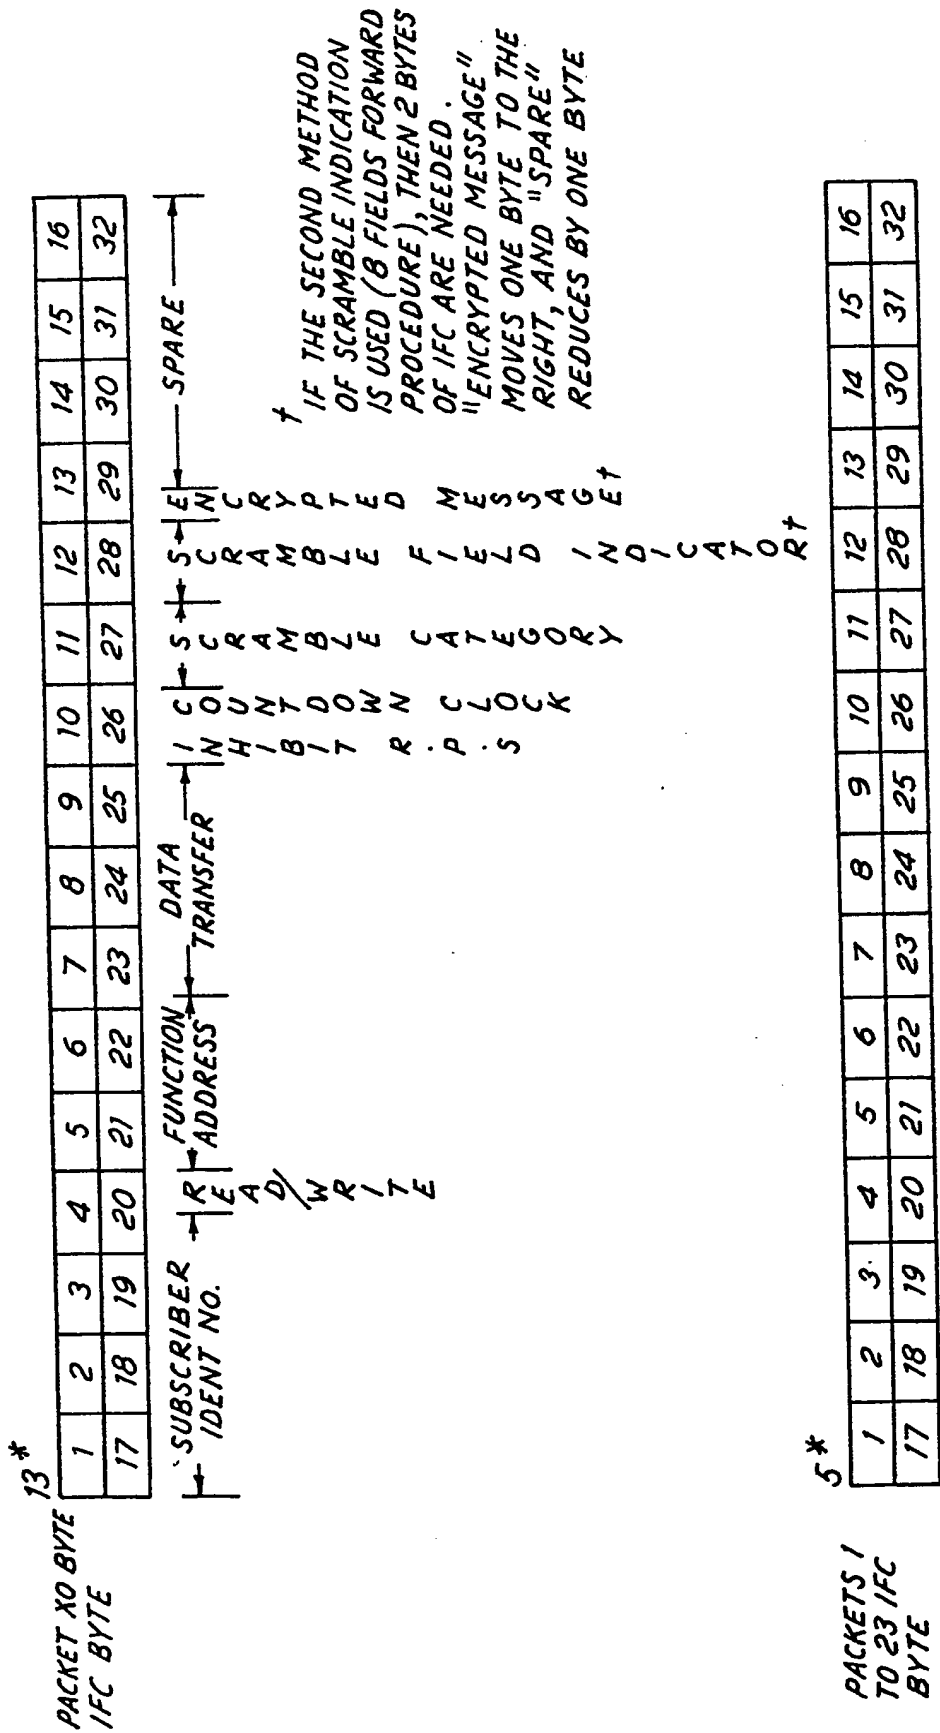 13*
PACKET X0 BYTE
1 2 3 4 5 6 7 8 9 10 11 12 13 14 15 16
IFC BYTE
17 18 19 20 21 22 23 24 25 26 27 28 29 30 31 32
SUBSCRIBER
IDENT NO.
READ/WRITE
FUNCTION
ADDRESS
DATA
TRANSFER
INHIBIT R.P.S
COUNTDOWN CLOCK
SCRAMBLE CATEGORY
SCRAMBLE FIELD INDICATOR†
ENCRYPTED MESSAGE†
SPARE
†
IF THE SECOND METHOD
OF SCRAMBLE INDICATION
IS USED (8 FIELDS FORWARD
PROCEDURE), THEN 2 BYTES
OF IFC ARE NEEDED.
"ENCRYPTED MESSAGE"
MOVES ONE BYTE TO THE
RIGHT, AND "SPARE"
REDUCES BY ONE BYTE
5*
PACKETS 1
TO 23 IFC
BYTE
1 2 3 4 5 6 7 8 9 10 11 12 13 14 15 16
17 18 19 20 21 22 23 24 25 26 27 28 29 30 31 32